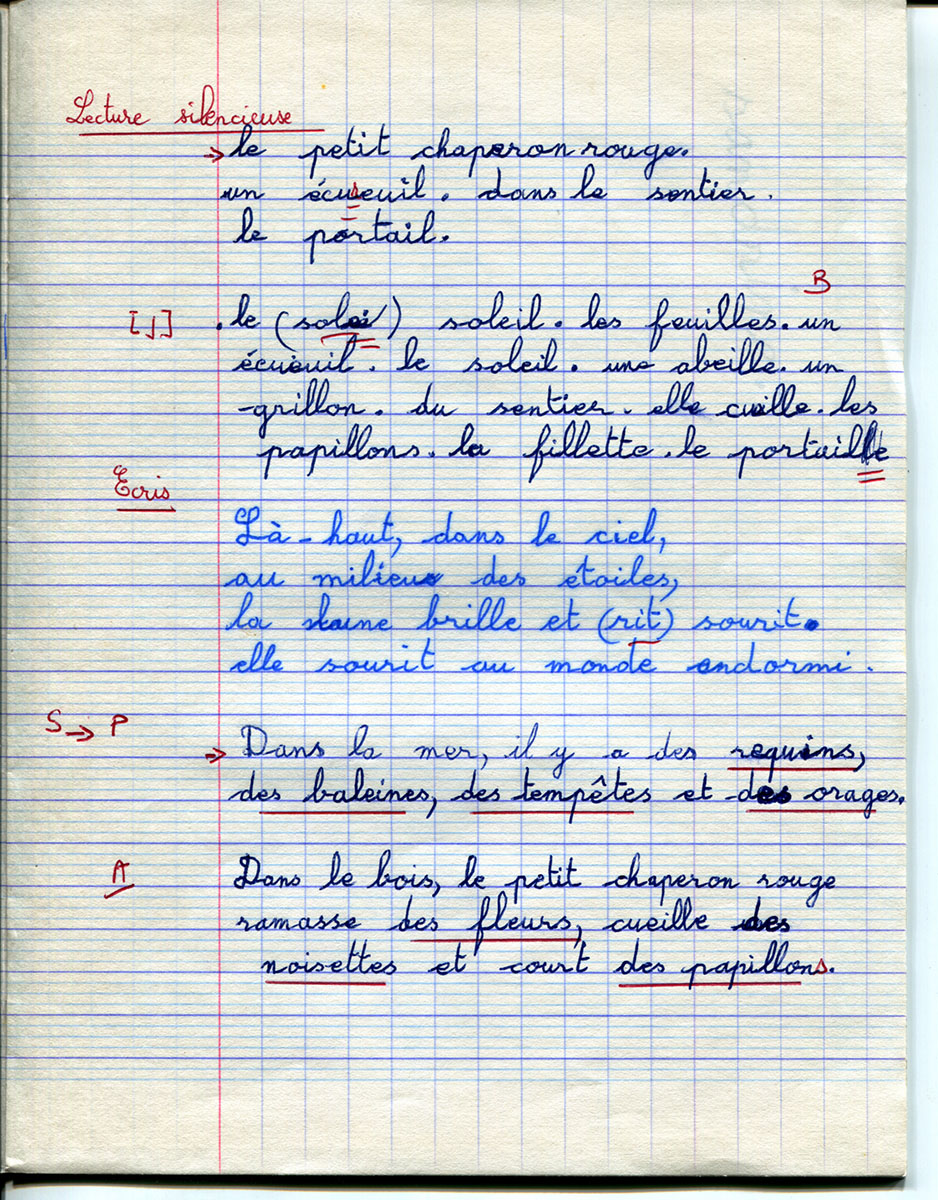 Lecture silencieuse
→ le petit chaperon rouge.
un écureuil. dans le sentier.
le portail.
B
[j] . le (solei) soleil. les feuilles. un
écueuil. le soleil. une abeille. un
grillon. du sentier. elle cueille. les
papillons. la fillette. le portaille
Ecris
Là-haut, dans le ciel,
au milieu des étoiles,
la lune brille et (rit) sourit.
elle sourit au monde endormi.
S → P
→ Dans la mer, il y a des requins,
des baleines, des tempêtes et des orages.
A Dans le bois, le petit chaperon rouge
ramasse des fleurs, cueille des
noisettes et court des papillons.